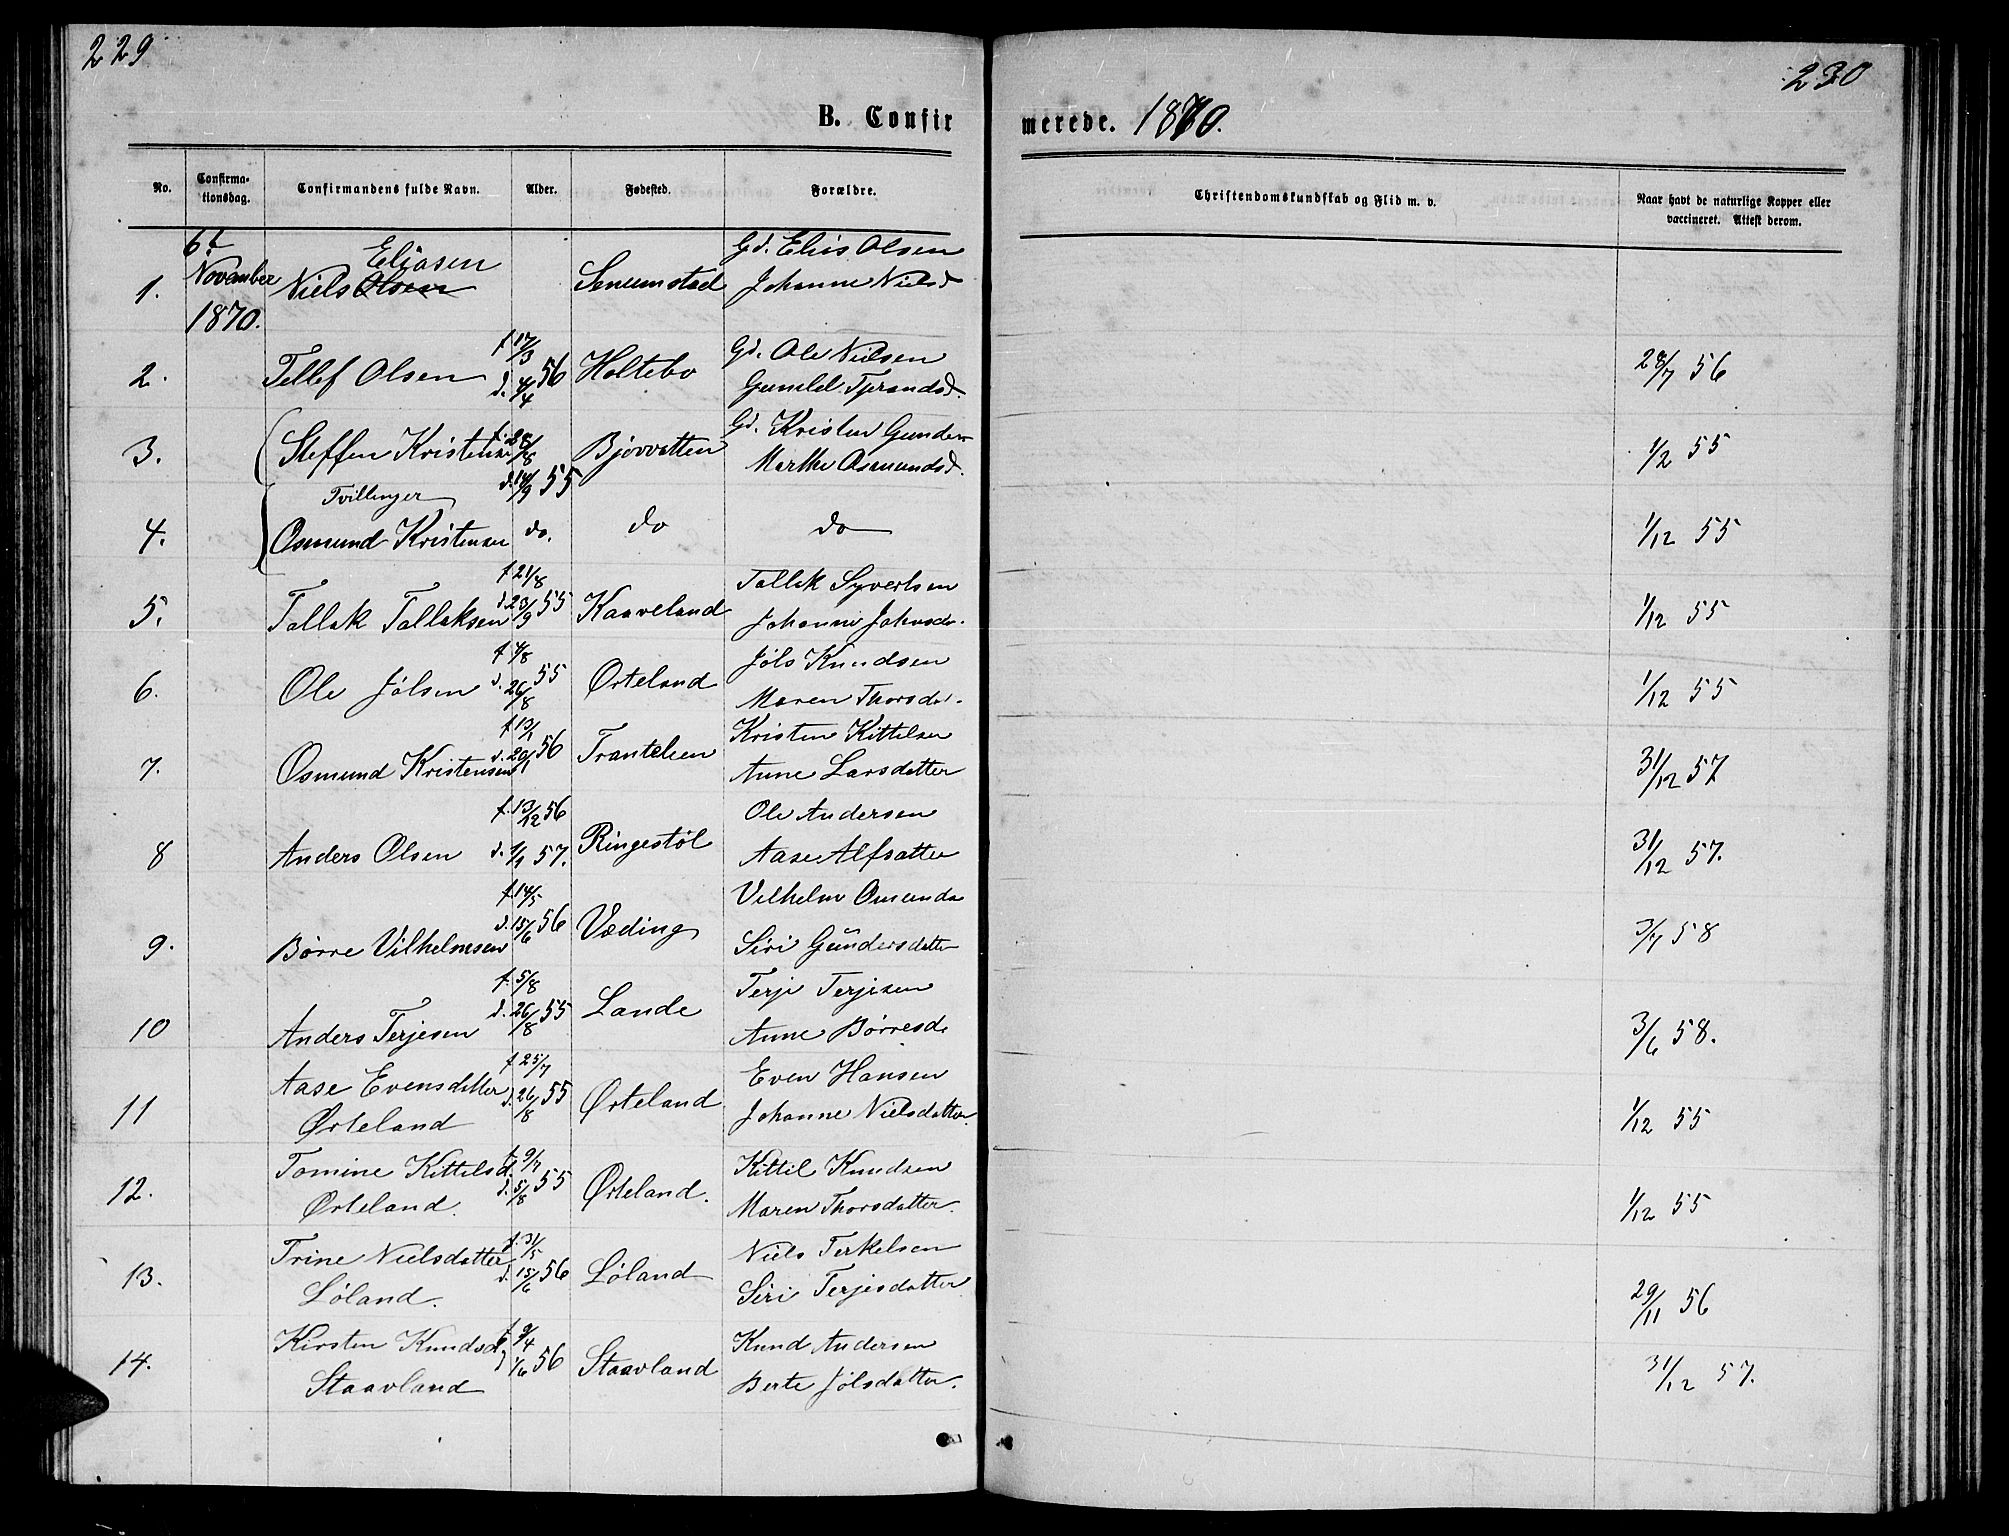 229
230
B. Confirmerede. 1870.
No.
Confirmationsdag.
Confirmandens fulde Navn.
Alder.
Fødested.
Forældre.
Christendomskundskab og Flid m. v.
Naar havt de naturlige Kopper eller vaccineret. Attest derom.
6t November 1870.
1. Niels Olsen Eliasen
Gd. Elias Olsen
Johanne Nielsd
2. Tellef Olsen f 17/3 d. 4/4 56 Holtebo
Gd. Ole Nielsen
28/7 56
3. Steffen Kristensen f. 28/8 d. 14/9 55 Bjovvatten
Gd. Kristen Gunders
Marthe Osmundsd.
1/2 55
Tvillinger
4. Osmund Kristensen do. do do
1/12 55
5. Tallak Tallaksen f 21/8 d. 23/9 55 Kaaveland
Tallak Syvertsen
Johanne Johnsd.
1/12 55
6. Ole Jølsen f 4/8 d. 26/8 55 Ørteland
Jøls Knudsen
Maren Thorsdat.
1/12 55
7. Osmund Kristensen f 13/1 d. 20/1 56 Trantelien
Kristen Kittelsen
Anne Larsdatter
31/12 57
8 Anders Olsen f. 13/12 56 d. 1/1 57. Ringestøl
Ole Andersen
Aase Alfsatter
31/12 57.
9. Børre Vilhelmsen f 14/5 d. 15/6 56 Væding
Vilhelm Omunds
Siri Gundersdatter
3/7 58
10 Anders Terjesen f. 5/8 d. 26/8 55 Lande
Terje Terjesen
Anne Børresd.
3/6 58.
11 Aase Evensdatter Ørteland f 25/7 d. 26/8 55 Ørteland
Even Hansen
Johanne Nielsdatter
1/12 55
12. Tomine Kittelsd. Ørteland. f 9/7 d. 5/8 55 Ørteland.
Kittil Knudsen
Maren Thorsdatter.
1/12 55
13. Trine Nielsdatter Løland. f. 31/5 d. 15/6 56 Løland
Niels Terkelsen
Siri Terjesdatter
29/11 56
14. Kirsten Knudsd Staavland f 9/4 d 1/6 56 Staavland
Knud Andersen
Berte Jølsdatter.
31/12 57.